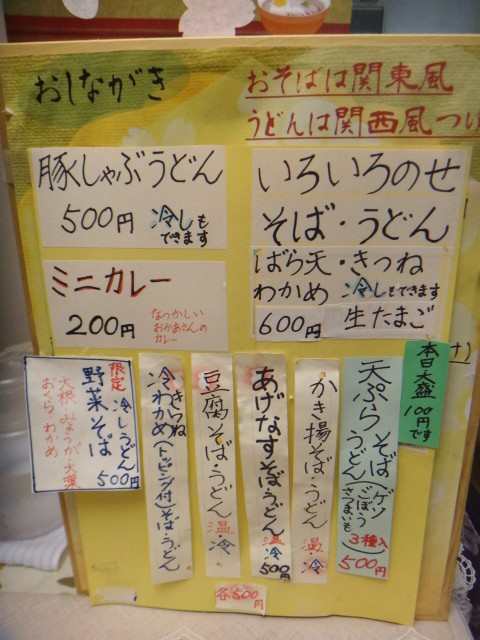 おしながき
おそばは関東風
うどんは関西風つけ
豚しゃぶうどん
500円 冷しも
できます
いろいろのせ
そば・うどん
ばら天・きつね
わかめ 冷しもできます
600円 生たまご
ミニカレー
200円 なつかしい
おかあさんの
カレー
本日大盛
100円です
天ぷらそば
うどん
ゲソ
ごぼう
さつまいも
3種入
500円
かき揚そば・うどん 温・冷
あげなすそば・うどん 温・冷
500円
豆腐そば・うどん 温・冷
冷きつね
わかめ(トッピング付)そば・うどん
限定 冷しうどん
野菜そば
500円
大根・みょうが・大葉
おくら・わかめ
各500円